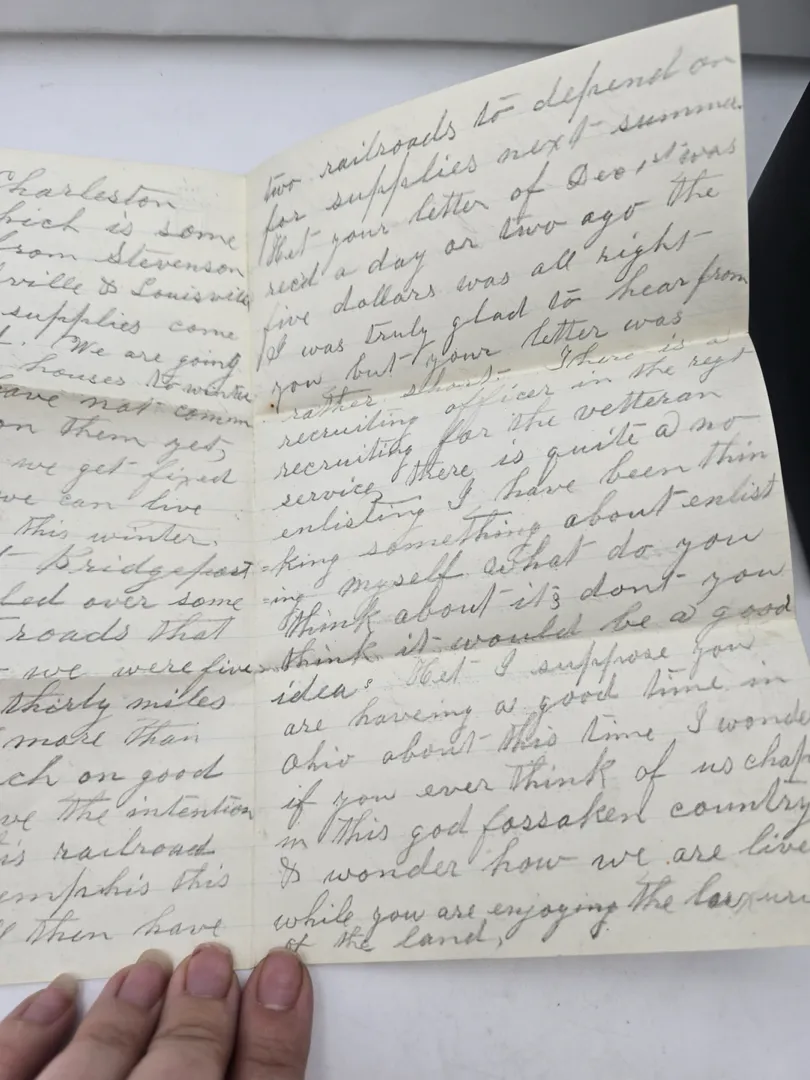 Charleston
which is some
from Stevenson
ville & Louisville
supplies come
We are going
houses to winter
have not comm
on them yet,
we get fixed
we can live
this winter.
Bridgeport
led over some
roads that
we were five
thirty miles
more than
ch on good
ve the intention
is railroad
emphis this
then have
two railroads to depend on
for supplies next summer.
Het your letter of Dec 1st was
recd a day or two ago the
five dollars was all right
I was truly glad to hear from
you but your letter was
rather short. There is a
recruiting officer in the regt
recruiting for the vetteran
service, there is quite a no
enlisting I have been thin
=king something about enlist
=ing myself what do you
think about it; dont you
think it would be a good
idea? Het I suppose you
are haveing a good time in
Ohio about this time I wonde
if you ever think of us chap
in this god fossaken country
& wonder how we are live
while you are enjoying the luxuri
of the land,